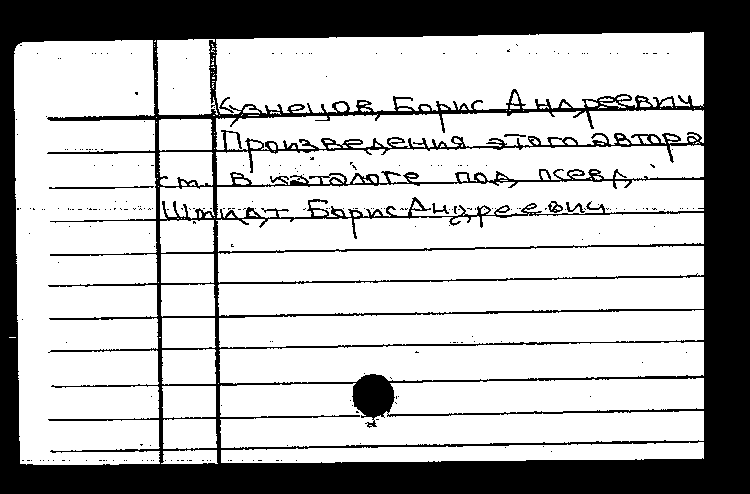 Кузнецов, Борис Андреевич
Произведения этого автора
см. в каталоге под псевд.:
Шмидт, Борис Андреевич